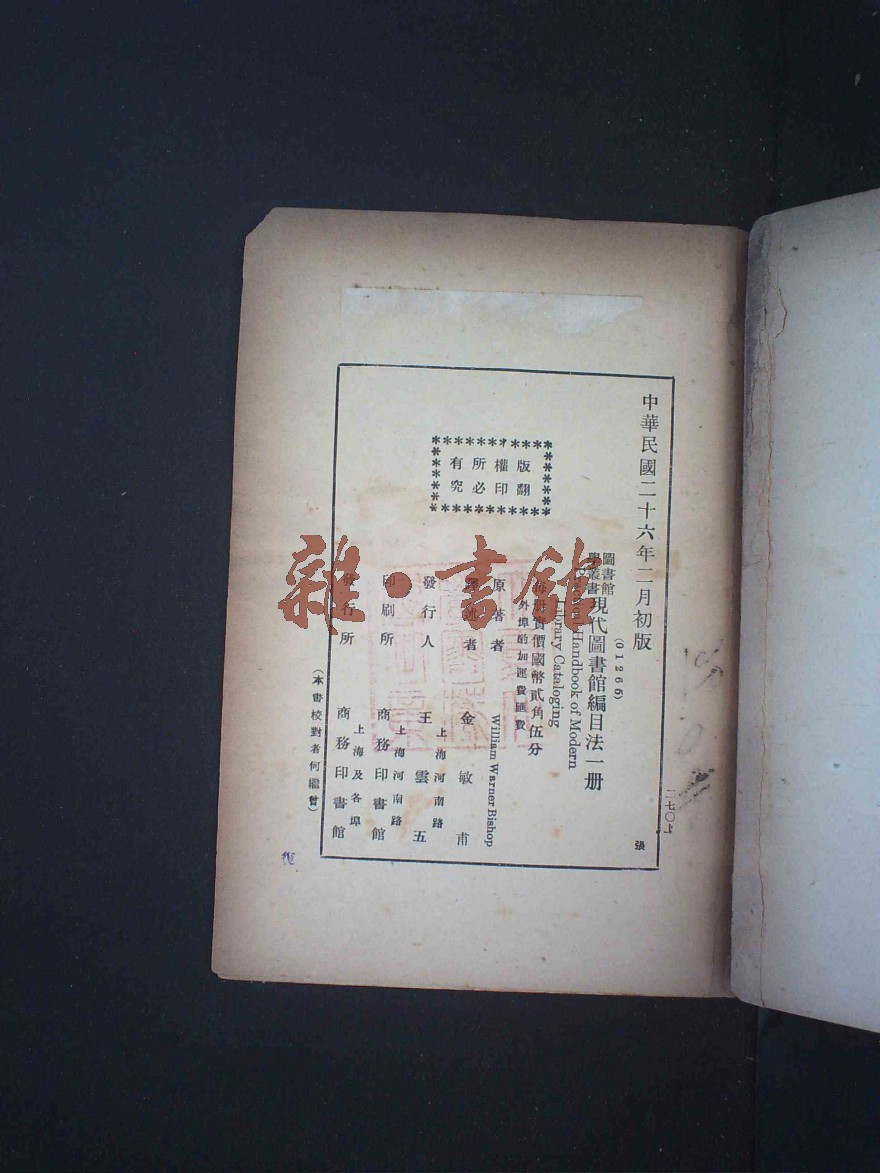 中華民國二十六年二月初版
(01265)
圖書館學叢書 現代圖書館編目法一册
Practical Handbook of Modern
Library Cataloging
每册實價國幣貳角伍分
外埠酌加運費匯費
版權所有
翻印必究
原著者 William Warner Bishop
譯述者 金敏甫
發行人 王雲五
上海河南路
印刷所 商務印書館
上海河南路
發行所 商務印書館
上海及各埠
(本書校對者何繼曾)
二七〇上
張
雜·書館